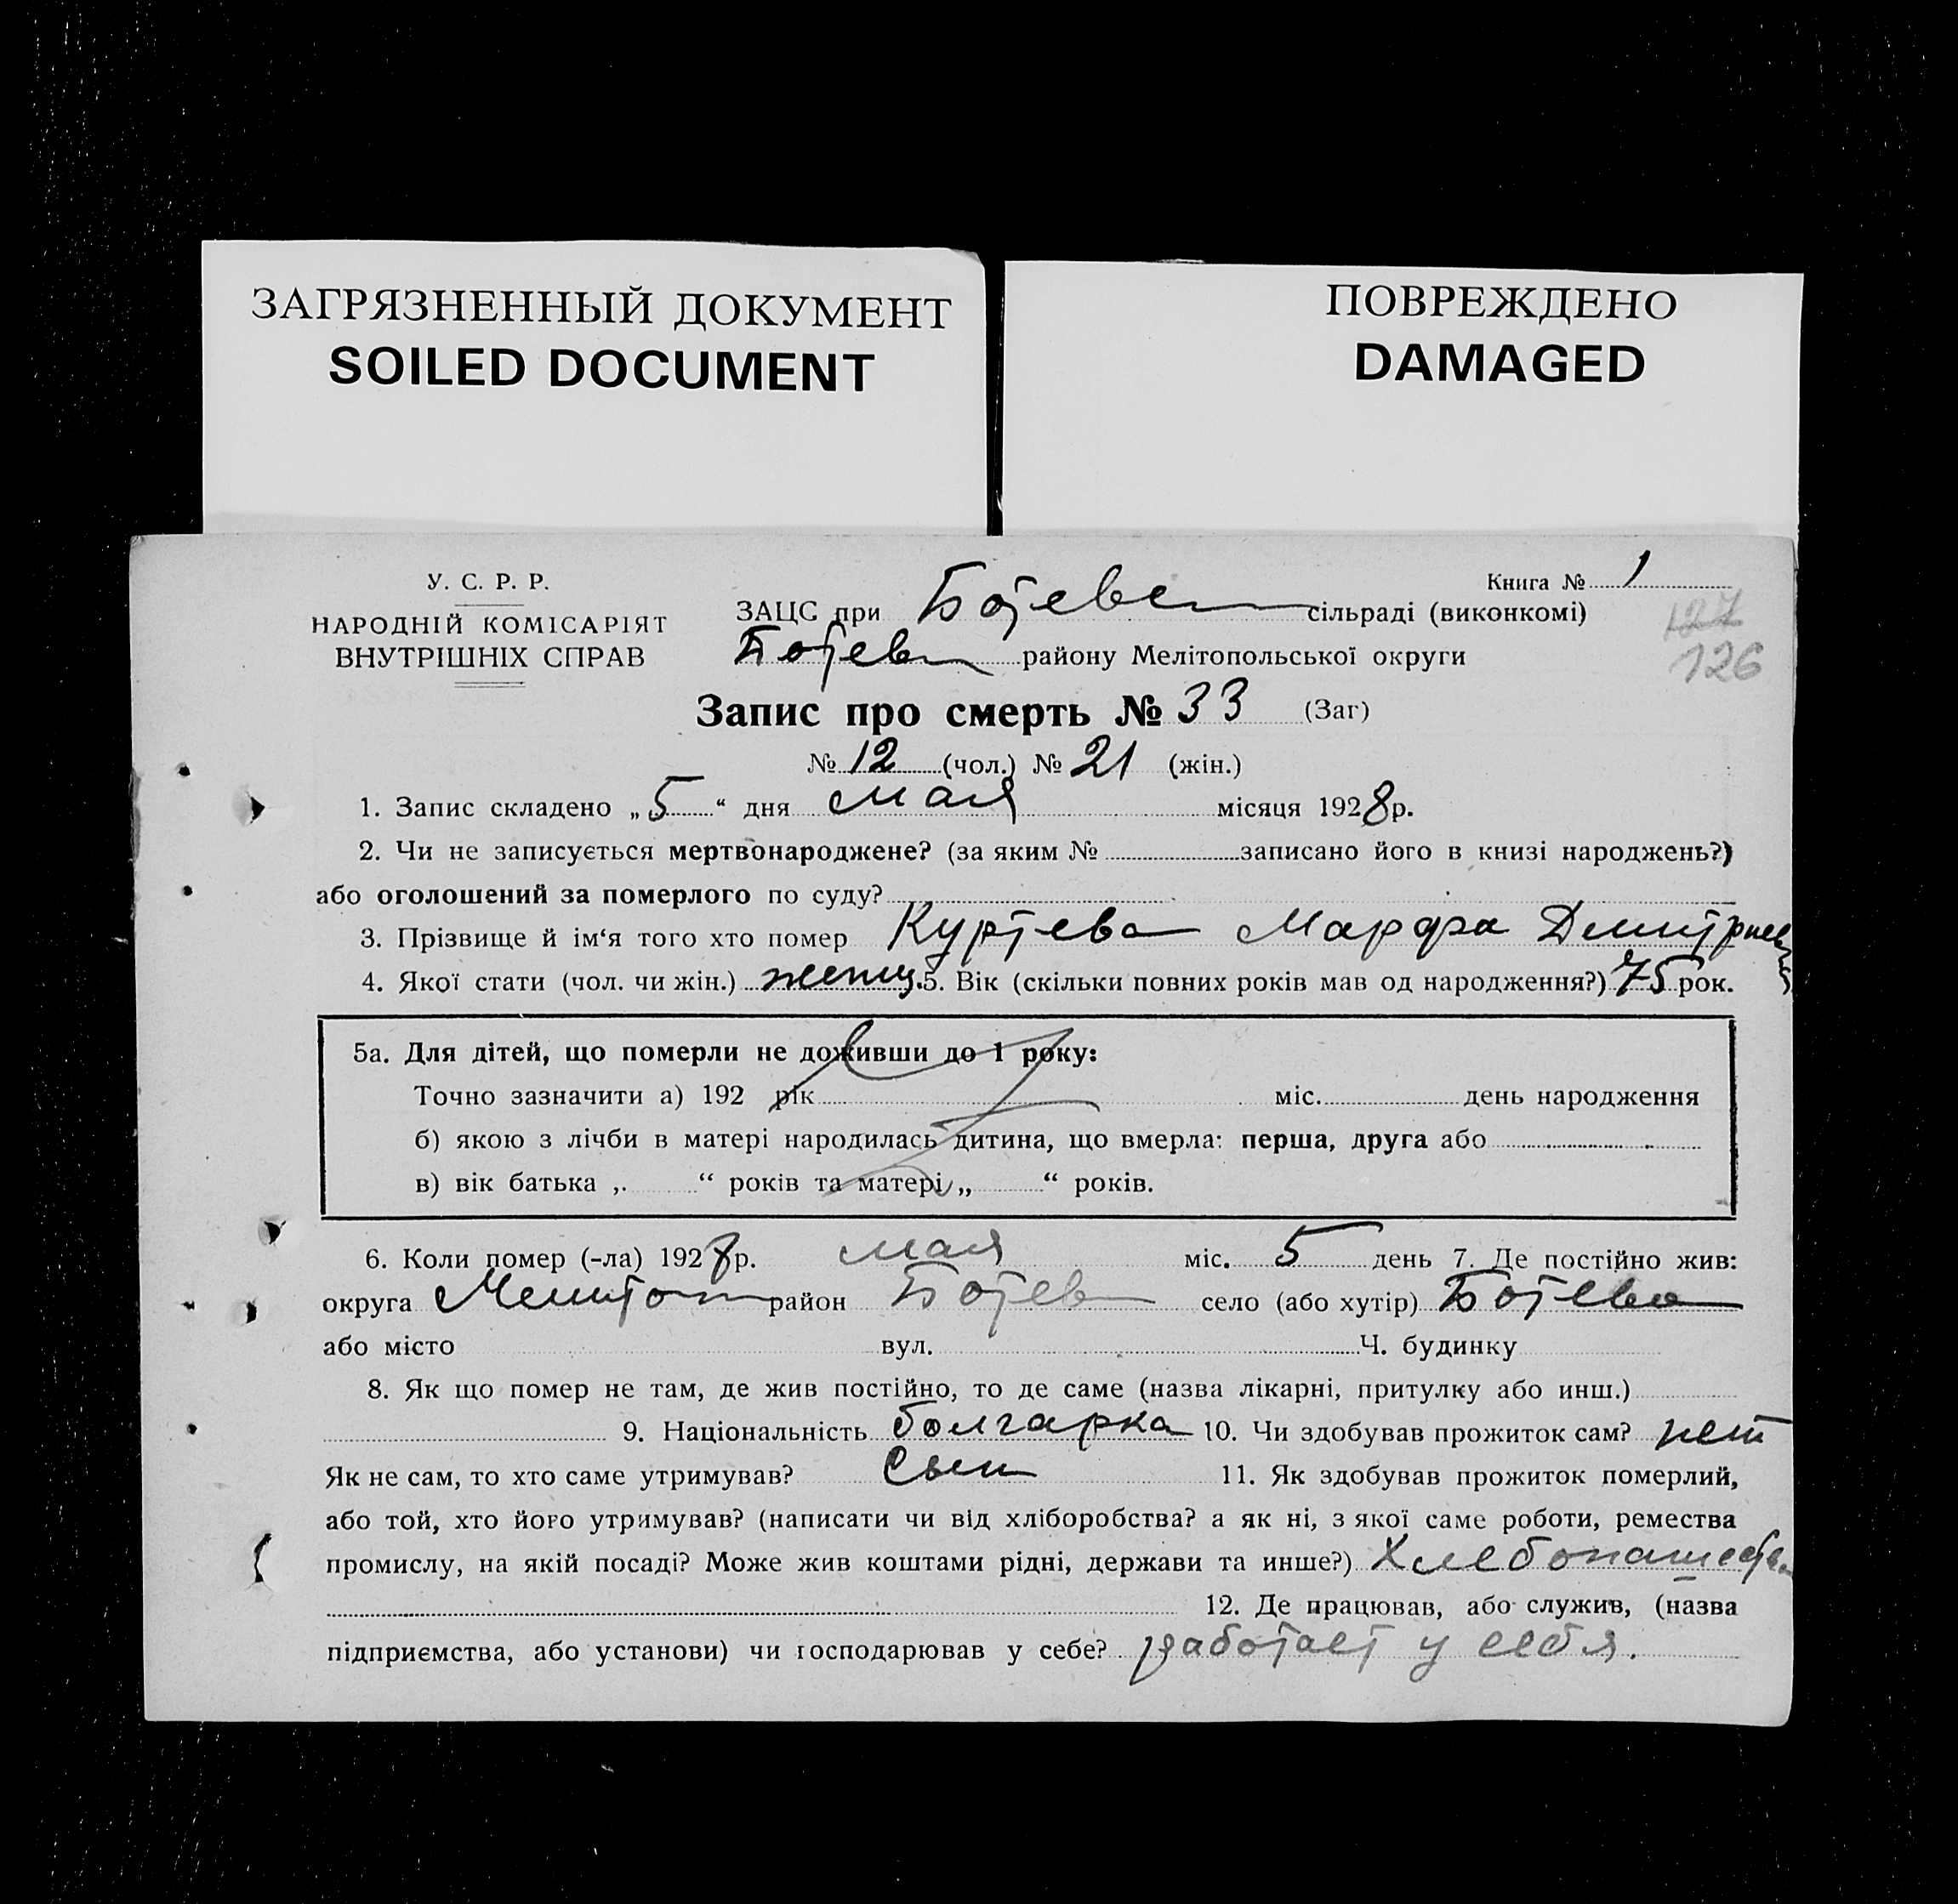 ЗАГРЯЗНЕННЫЙ ДОКУМЕНТ
SOILED DOCUMENT
ПОВРЕЖДЕНО
DAMAGED
У. С. Р. Р.
НАРОДНІЙ КОМІСАРІЯТ
ВНУТРІШНІХ СПРАВ
Книга № 1
ЗАЦС при Ботевск сільраді (виконкомі)
Ботев району Мелітопольської округи
127
126
Запис про смерть № 33 (Заг)
№ 12 (чол.) № 21 (жін.)
1. Запис складено „5“ дня мая місяця 1928р.
2. Чи не записується мертвонароджене? (за яким № записано його в книзі народжень?)
або оголошений за померлого по суду?
3. Прізвище й ім‘я того хто помер Куртева Марфа Дмитриев
4. Якої стати (чол. чи жін.) женщ. 5. Вік (скільки повних років мав од народження?) 75 рок.
5а. Для дітей, що померли не доживши до 1 року:
Точно зазначити а) 192 рік міс. день народження
б) якою з лічби в матері народилась дитина, що вмерла: перша, друга або
в) вік батька „ “ років та матері „ “ років.
6. Коли помер (-ла) 1928р. мая міс. 5 день 7. Де постійно жив:
округа Мелитоп район Ботев село (або хутір) Ботево
або місто вул. Ч. будинку
8. Як що помер не там, де жив постійно, то де саме (назва лікарні, притулку або инш.)
9. Національність болгарка 10. Чи здобував прожиток сам? нет
Як не сам, то хто саме утримував? Сын 11. Як здобував прожиток померлий,
або той, хто його утримував? (написати чи від хліборобства? а як ні, з якої саме роботи, ремества
промислу, на якій посаді? Може жив коштами рідні, держави та инше?) Хлебопашеств
12. Де працював, або служив, (назва
підприємства, або установи) чи господарював у себе? работает у себя.